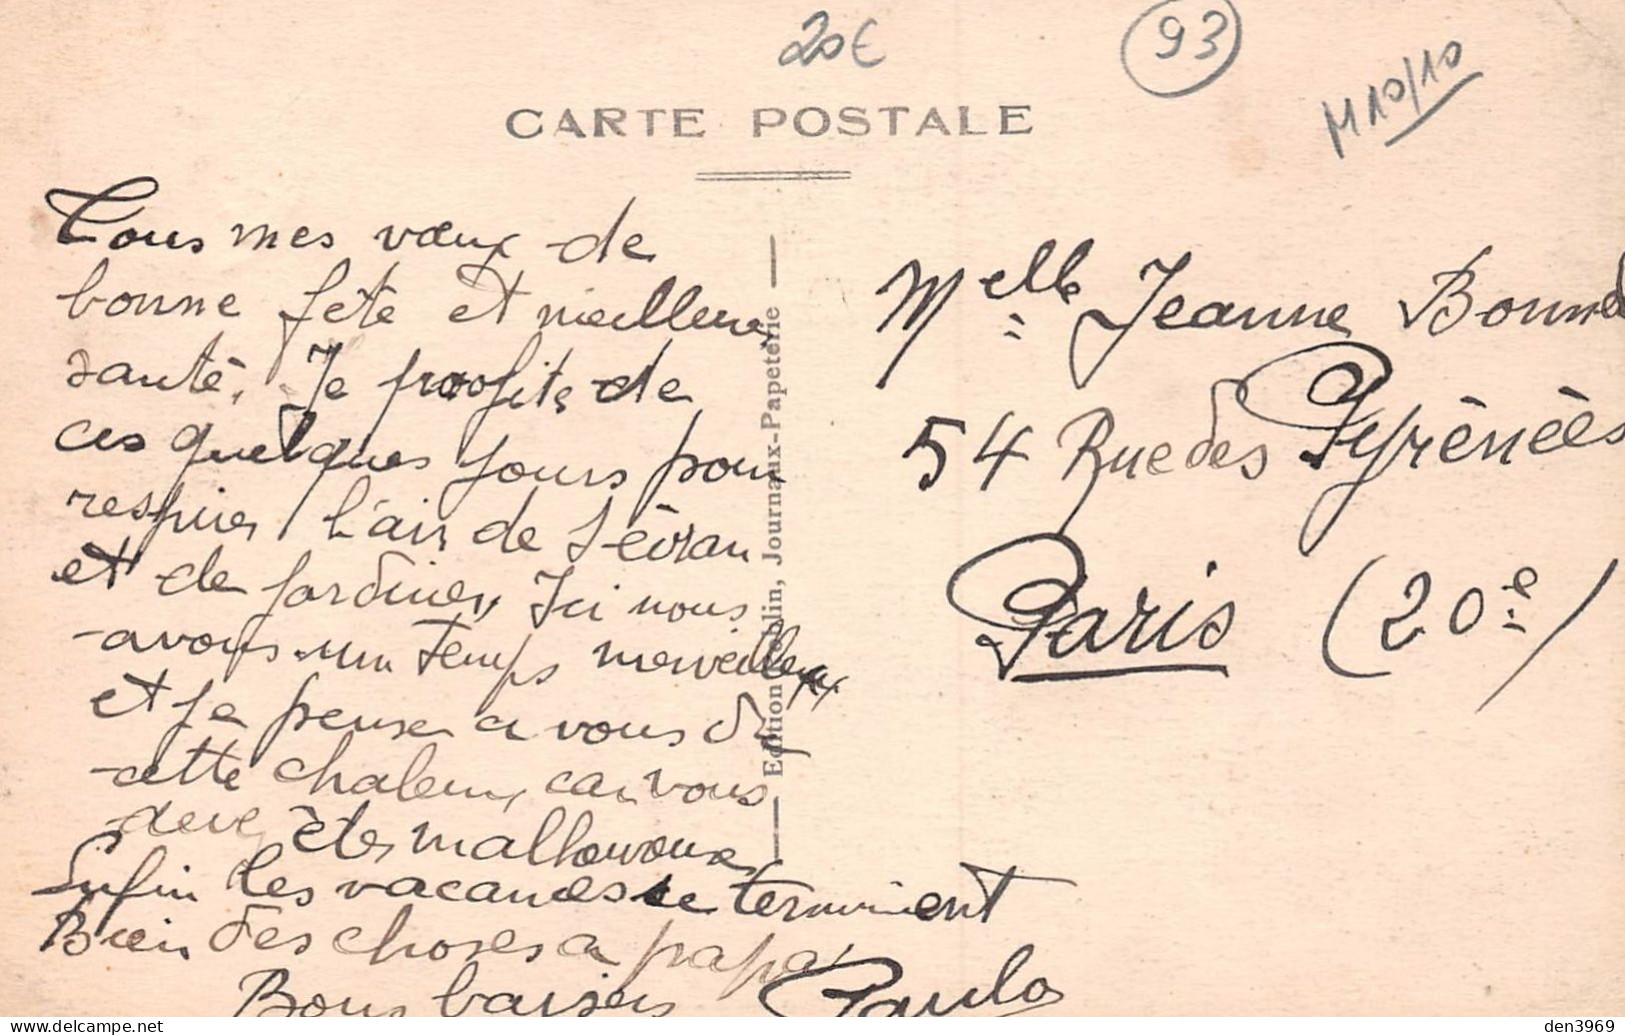 20€
93
M10/10
CARTE POSTALE
Tous mes vœux de
bonne fête et meilleure
santé. Je profite de
ces quelques jours pour
respirer l'air de Sevran
et de jardiner, Ici nous
avons un temps merveilleux
et je pense a vous de
cette chaleur, car vous
devez être malheureuse
Enfin les vacances se terminent
Bien des choses a papa
Bons baisers Paulo
Edition Colin, Journaux-Papeterie
Melle Jeanne Bonnet
54 Rue des Pyrénées
Paris (20e)
den3969